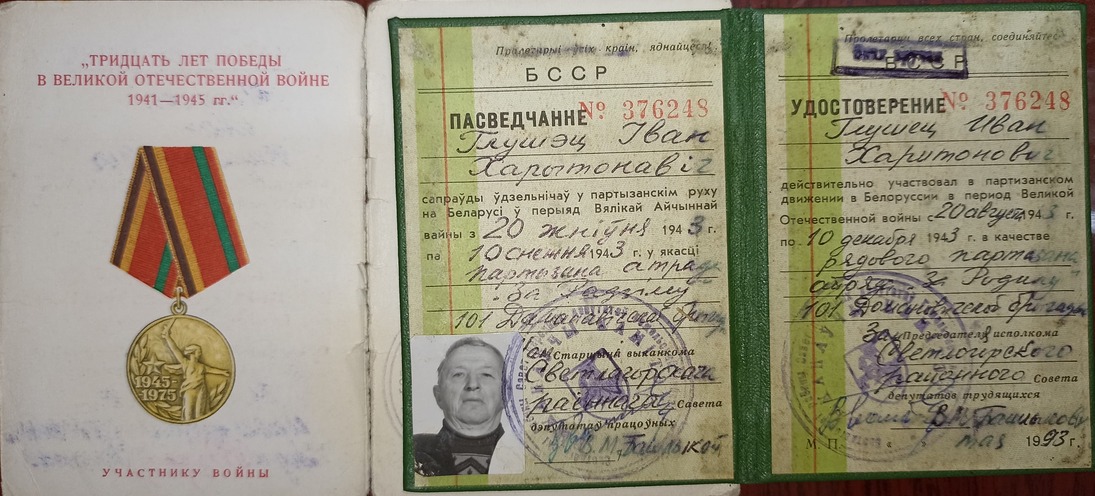 „ТРИДЦАТЬ ЛЕТ ПОБЕДЫ
В ВЕЛИКОЙ ОТЕЧЕСТВЕННОЙ ВОЙНЕ
1941—1945 гг.“
1945-
1975
УЧАСТНИКУ ВОЙНЫ
Пралетарыі ўсіх краін, яднайцеся!
БССР
ПАСВЕДЧАННЕ № 376248
Глушэц Іван
Харытонавіч
сапраўды ўдзельнічаў у партызанскім руху
на Беларусі ў перыяд Вялікай Айчыннай
вайны з 20 жніўня 1943 г.
па 10 снежня 1943 г. у якасці
партызана атрада
"За Радзіму"
101 Даманавіцкай
Зам Старшыні выканкома
Светлагорскага
раённага Савета
дэпутатаў працоўных
В.М.
Пролетарии всех стран, соединяйтесь
БССР
УДОСТОВЕРЕНИЕ № 376248
Глушец Иван
Харитонович
действительно участвовал в партизанском
движении в Белоруссии в период Великой
Отечественной войны с 20 августа 1943 г.
по 10 декабря 1943 г. в качестве
рядового партизана
отряда За Родину
101 Домановичской бригады
Зам Председателя исполкома
Светлогорского
районного Совета
депутатов трудящихся
В.М.
М. П. « » мая 1993 г.